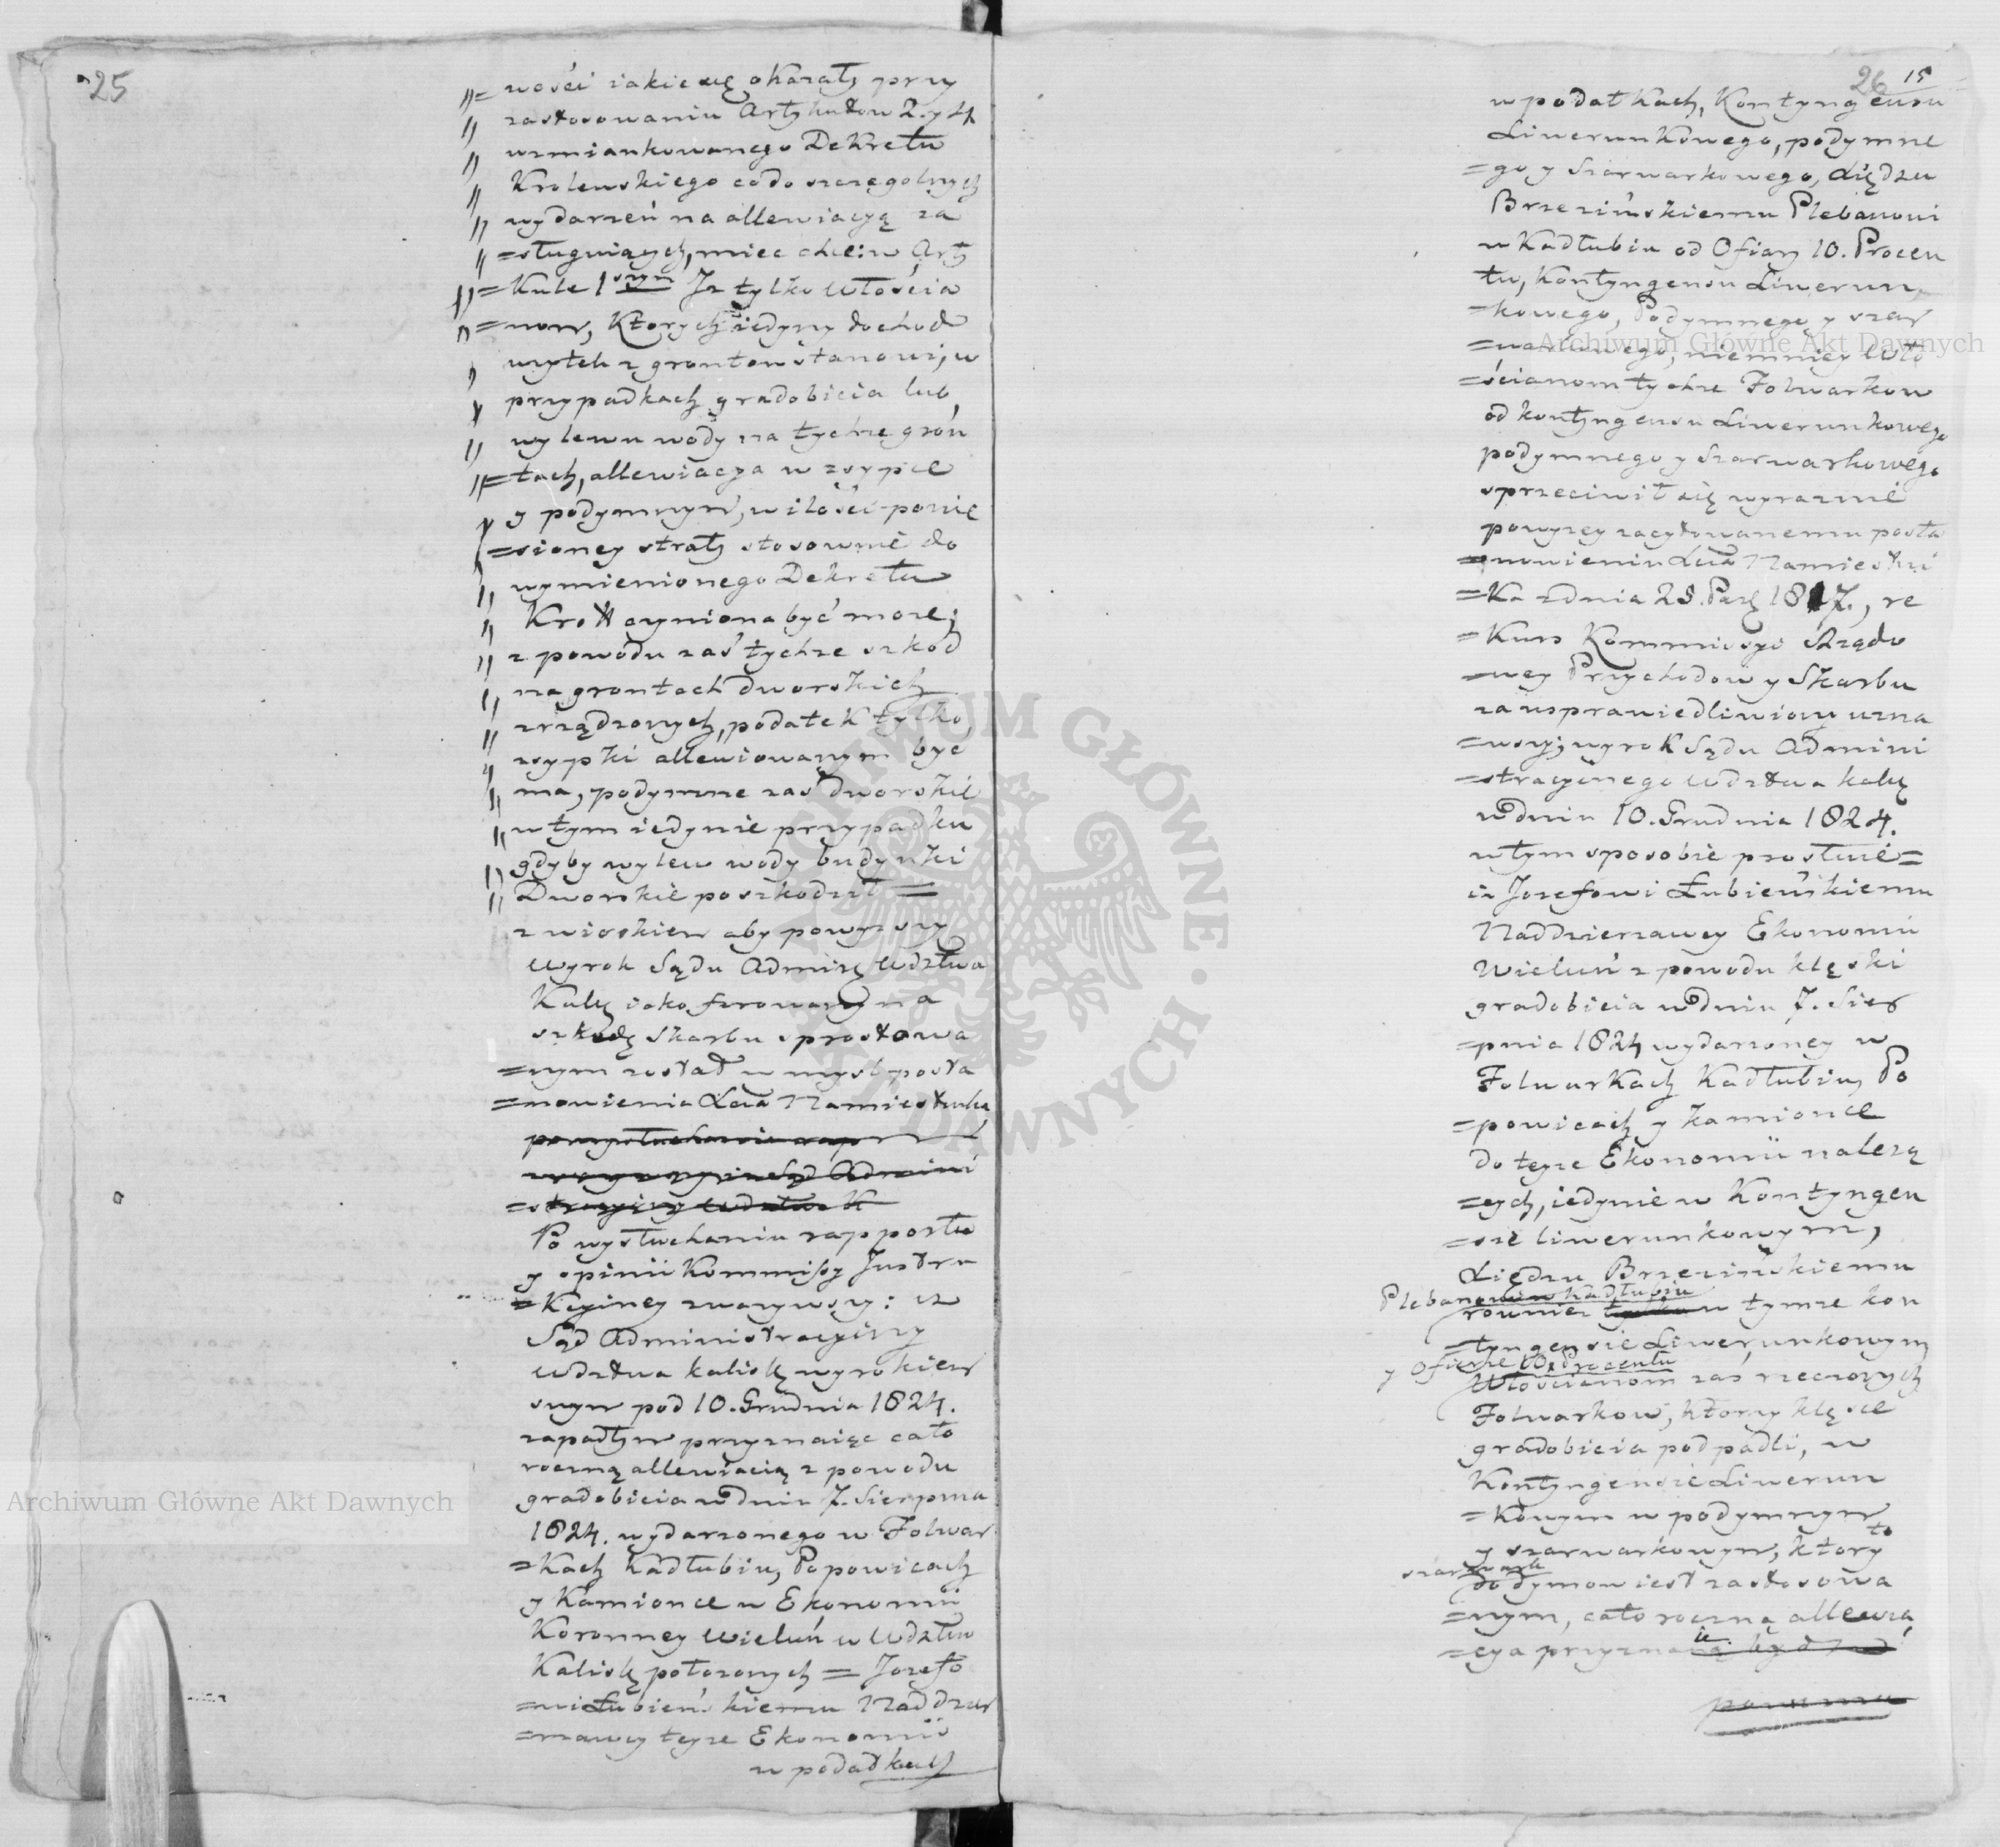 25
ności iakie się okazały przy
zastosowaniu Artykułow 2. y 4
wzmiankowanego Dekretu
Krolewskiego co do szczegolnych
wydarzeń na allewiacyą za
=sługuiących, miec chce: w Arty
=kule 1szym Iz tylko Włościa
=now, Ktorych iedyny dochod
wyłch z grontow stanowi, w
przypadkach gradobicia lub
wylewu wody na tychze gron
=tach, allewiacya w zsypce
y podymnym, w ilości ponie
=sioney straty stosownie do
wymienionego Dekretu
Kroll czyniona być może;
z powodu zaś tychze szkod
na grontach dworskich
zrządzonych, podatek tylko
zsypki allewiowanym być
ma, podymne zaś dworskie
w tym iedynie przypadku
gdyby wylew wody budynki
Dworskie poszkodził =
z wioskiem aby powyzszy
Wyrok Sądu Admin Wdztwa
Kalis iako ferowany na
szkodę Skarbu sprostowa
=nym został w mysl posta
=nowienia Xcia Namiestnika
=stracyiny Wdztwa K
Po wysłuchaniu rapportu
y opinii Kommissyi Instru
=kcyiney zwazywszy: iz
Sąd Administracyiny
Wdztwa kalisk wyrokiem
swym pod 10. Grudnia 1824.
zapadłym przyznaiąc cało
roczną allewiacią z powodu
gradobicia w dniu 7. Sierpnia
1824. wydarzonego w Folwar
=kach Kadłubiu, Popowicach
y Kamionce w Ekonomii
Koronney Wieluń w Wdztwie
Kalisk połozonych = Jozefo
=wi Łubieńskiemu Naddzier
=zawcy teyze Ekonomii
w podatkach
26 15
w podatkach, Kontyngensu
Liwerunkowego, podymne
=go y Szarwarkowego, Xiędzu
Brzezińskiemu Plebanowi
w Kadłubiu od Ofiary 10. Procen
tu, Kontyngensu Liwerun
=kowego, Podymnego y szar
=warkowego, niemniey Wło
=ścianom tychze Folwarkow
od kontyngensu Liwerunkowego
podymnego y Szarwarkowego
sprzeciwił się wyraznie
powyzey zacytowanemu posta
=nowieniu Xcia Namiestni
=ka z dnia 28. Paź 1817., re
=kurs Kommissyi Rządo
=wey Przychodow y Skarbu
za usprawiedliwiony uzna
=wszy, wyrok Sądu Admini
=stracyinego Wdztwa kalis
w dniu 10. Grudnia 1824.
w tym sposobie prostuie=
iz Jozefowi Łubieńskiemu
Naddzierzawcy Ekonomii
Wieluń z powodu klęski
gradobicia w dniu 7. Sier
=pnia 1824 wydarzoney w
Folwarkach Kadłubiu, Po
=powicach y Kamionce
do teyze Ekonomii nalezą
=cych, iedynie w Kontyngen
=sie liwerunkowym,
Xiędzu Brzezińskiemu
Plebanowi w Kadłubiu
rownież tylko w tymze kon
=tyngensie Liwerunkowym
y Ofierze 10. Procentu
Włościanom zaś rzeczonych
Folwarkow, ktorzy klęsce
gradobicia podpadli, w
Kontyngensie Liwerun
=kowym w podymnym
y szarwarkowym, ktory to
szarwark
do dymow iest zastosowa
=nym, cało roczną allewia
=cya przyznaie
Archiwum Główne Akt Dawnych
Archiwum Główne Akt Dawnych
ARCHIWUM GŁÓWNE AKT DAWNYCH